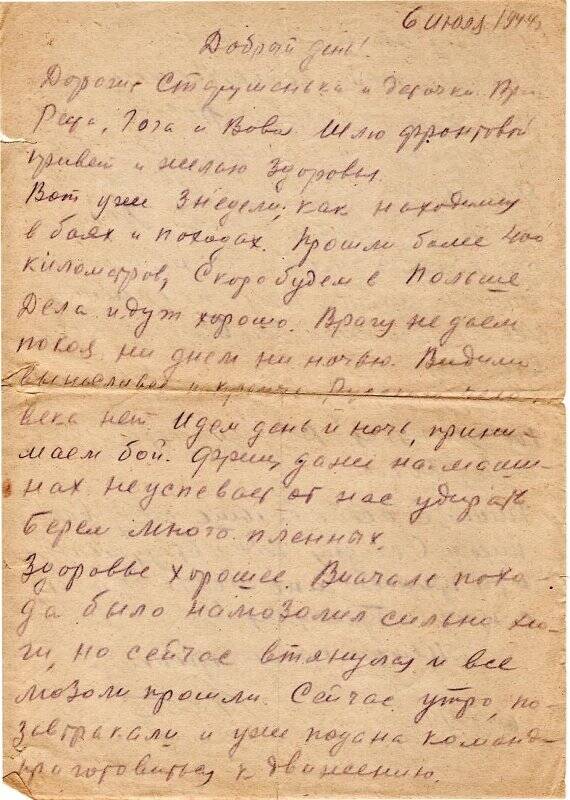 6 июля 1944
Добрый день!
Дорогие Старушенька и дочечка
Гога и Вова Шлю фронтовой
привет и желаю здоровья.
Вот уже 3 недели, как находимся
в боях и походах. Прошли более 400
километров, Скоро будем в Польше
Дела идут хорошо. Врагу не даем
покоя ни днем ни ночью. Видимо
выносливей и крепче Русского чело
века нет. Идем день и ночь, прини-
маем бой. Фриц даже на маши-
нах неуспевает от нас удирать
берем много пленных.
Здоровье хорошее. Вначале похо-
да было намозолил сильно но-
ги, но сейчас втянулся и все
мозоли прошли. Сейчас утро, по-
завтракали и уже подана команда
приготовиться к движению.